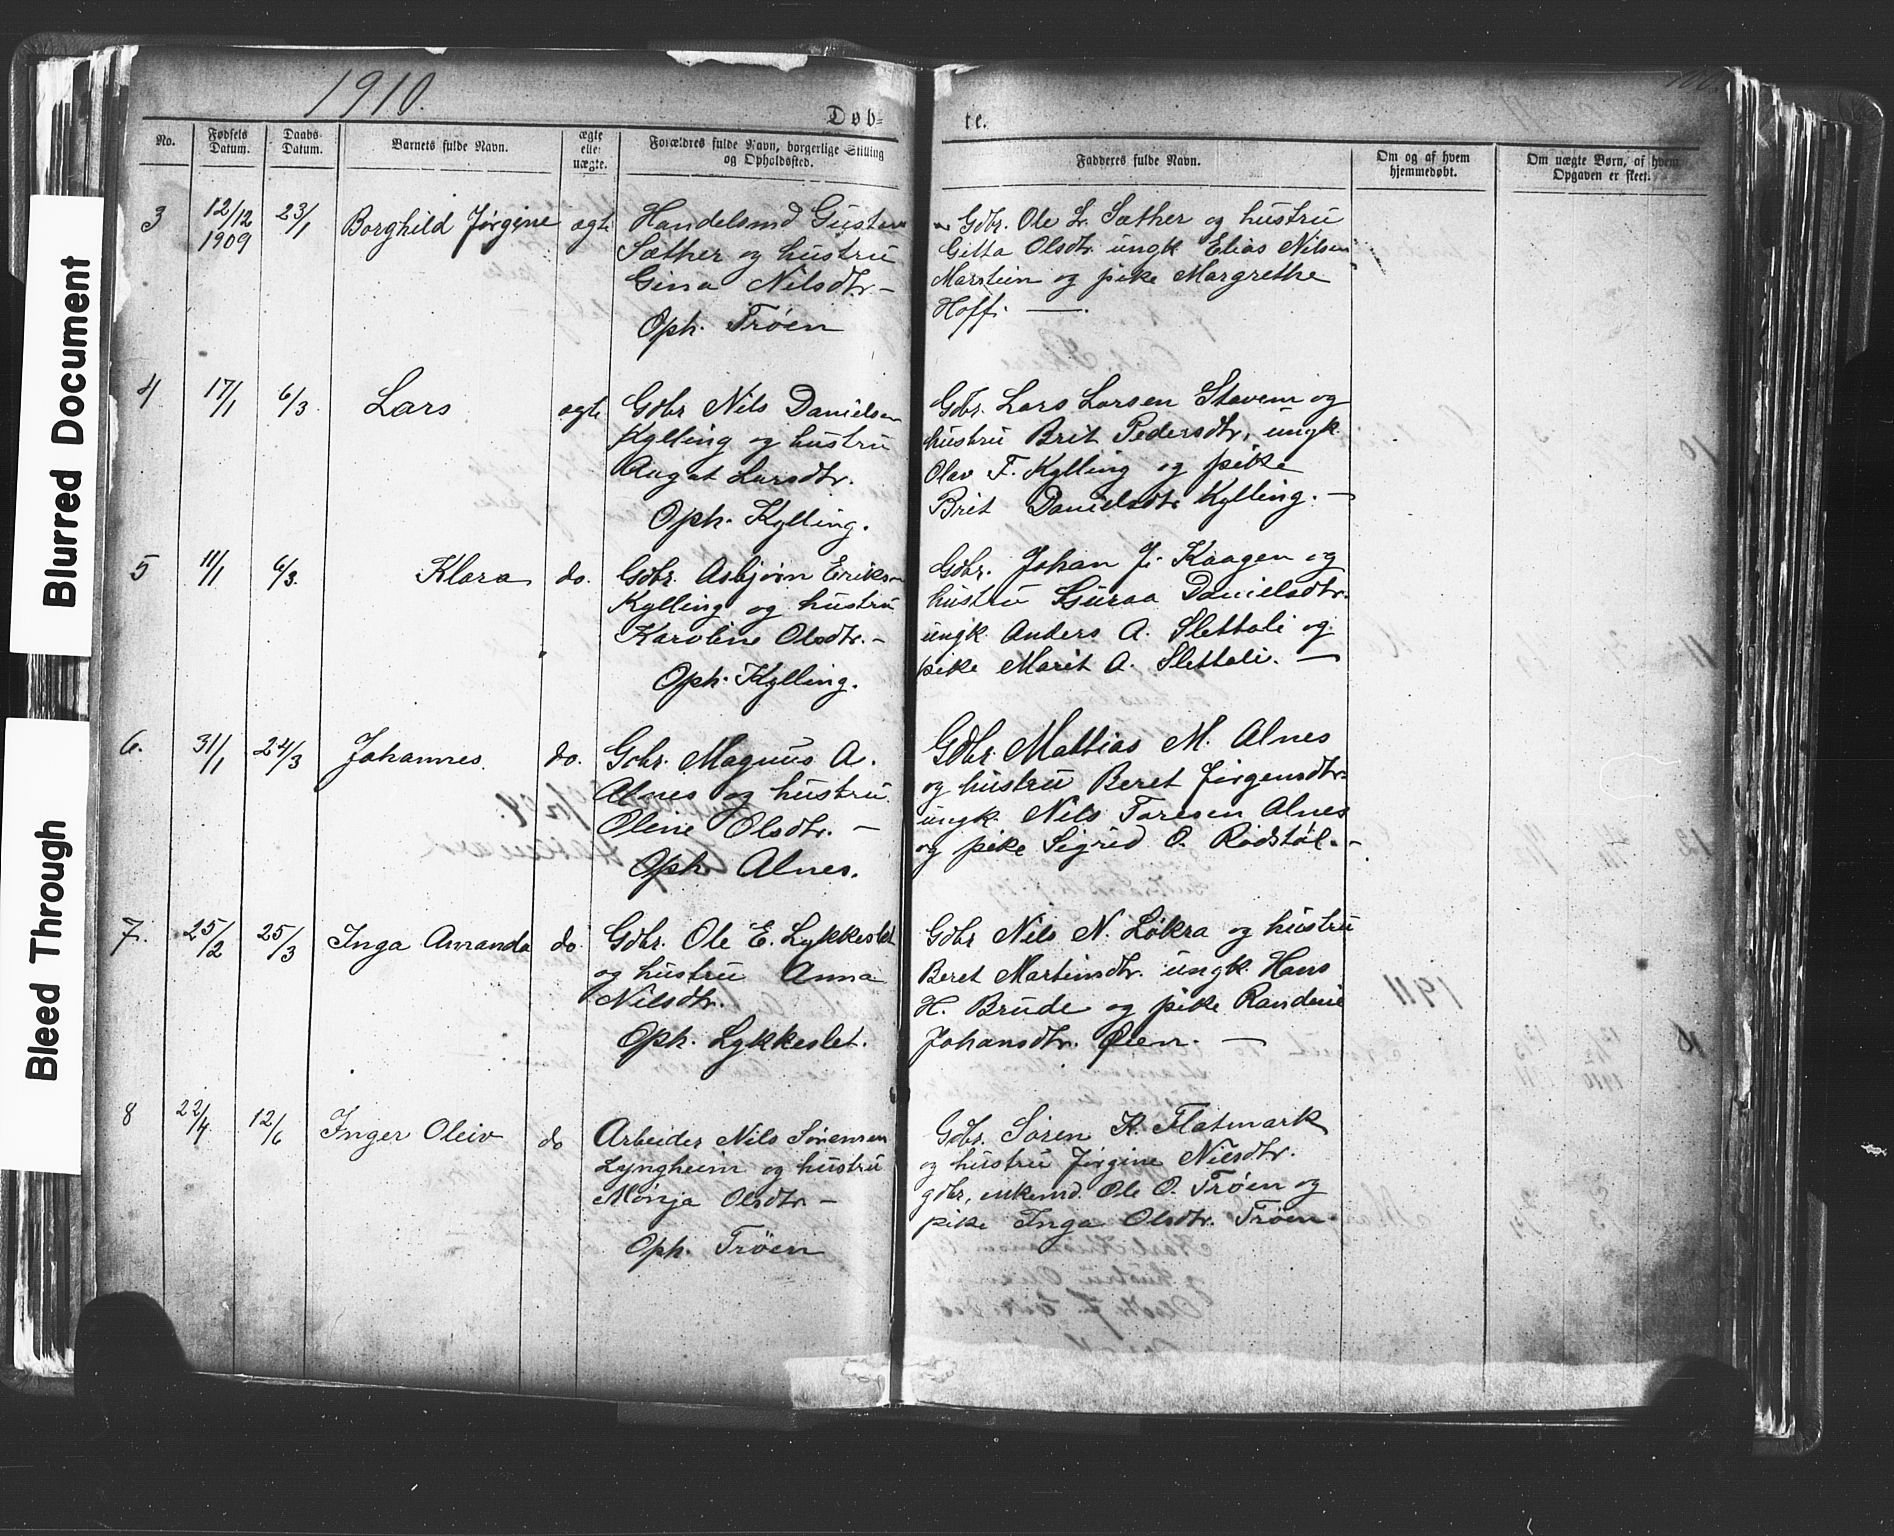 1910.
Døb-
te.
No.
Fødsels Datum.
Daabs Datum.
Barnets fulde Navn.
ægte eller uægte.
Forældres fulde Navn, borgerlige Stilling og Opholdssted.
Fadderes fulde Navn.
Om og af hvem hjemmedøbt.
Om uægte Børn, af hvem Opgaven er skeet.
Blurred Document
Bleed Through
3
12/12 1909
23/1
Borghild Jørgine
ægte
Handelsmd Gustav
Sæther og hustru
Gina Nilsdtr. -
Oph. Trøen
Gdbr. Ole L. Sæther og hustru
Gitta Olsdtr. ungk. Elias Nilsen
Marstein og pike Margrethe
Hoff. —
4
17/1
6/3
Lars
ægte
Gdbr Nils Danielsen
Kylling og hustru
Aagot Larsdtr.
Oph. Kylling.
Gdbr. Lars Larsen Stavem og
hustru Brit Pedersdtr, ungk.
Olav F. Kylling og pike
Brit Danielsdtr Kylling. —
5
11/1
6/3
Klara
do.
Gdbr. Asbjørn Eriksen
Kylling og hustru
Karoline Olsdtr. -
Oph. Kylling.
Gdbr. Johan J. Kaagen og
hustru Guraa Danielsdtr.
ungk. Anders A. Slettali og
pike Marit A. Slettali. —
6.
31/1
24/3
Johannes.
do.
Gdbr. Magnus A.
Alnes og hustru
Oline Olsdtr. —
Oph. Alnes.
Gdbr. Mathias M. Alnes
og hustru Beret Jørgensdtr.
ungk. Nils Toresen Alnes
og pike Sigrid O. Rødstøl. -
7.
25/2
25/3
Inga Amanda
do.
Gdbr. Ole E. Lykkeslet
og hustru Anna
Nilsdtr.
Oph. Lykkeslet.
Gdbr Nils N. Løkra og hustru
Beret Martinsdtr. ungk. Hans
H. Brude og pike Randine
Johansdtr. Øien. —
8
22/4
12/6
Inger Oleiv
do
Arbeider Nils Sørensen
Lyngheim og hustru
Mønja Olsdtr. —
Oph. Trøen
Gdbr. Søren K. Flatmark
og hustru Jørgine Nilsdtr.
gdbr, enkemd. Ole O. Trøen og
pike Inga Olsdtr. Trøen.